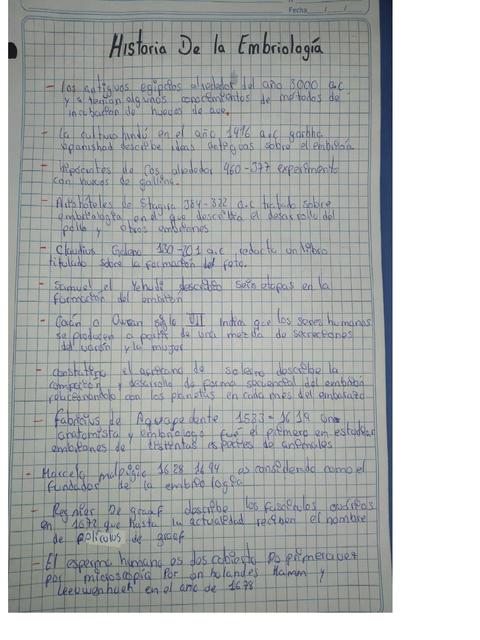 Fecha / /
Historia De la Embriología
- Los antiguos egipcios alrededor del año 3000 a.c
y a tenian algunos conocimientos de metodos de
incubacion de huevos de ave.
- La cultura hindú en el año 1416 a.c garbha
Upanishad describe ideas antiguas sobre el embrion
- Hipocrates de Cos alrededor 460-377 experimento
con huevos de gallina.
- Aristóteles de Stagira 384-322 a.c tratado sobre
embriologia en el que describia el desarrollo del
pollo y otros embriones
- Claudius Galeno 130-201 a.c redacta un libro
titulado sobre la formación del feto.
- Samuel el Yehudi describio seis etapas en la
formacion del embrion
- Corán o Quran siglo VII Indica que los seres humanos
se producen a partir de una mezcla de secreciones
del varon y la mujer
- constatino el africano de salerno describe la
composicion y desarrollo de forma secuencial del embrion
relacionandolo con los planetas en cada mes del embarazo
- Fabricius de Aquapedente 1533-1619 un
anatomista y embriologo fue el primero en estudiar
embriones de distintas especies de animales
- Marcelo malpigio 1628 1694 es considerado como el
fundador de la embriologia
- Regnier De graaf describe los foliculos ováricos
en 1672 que hasta la actualidad reciben el nombre
de foliculos de graaf
- El esperma humano es descubierto por primera vez
por microscopia Por un holandes Hamm y
Leeuwenhoek en el año de 1678